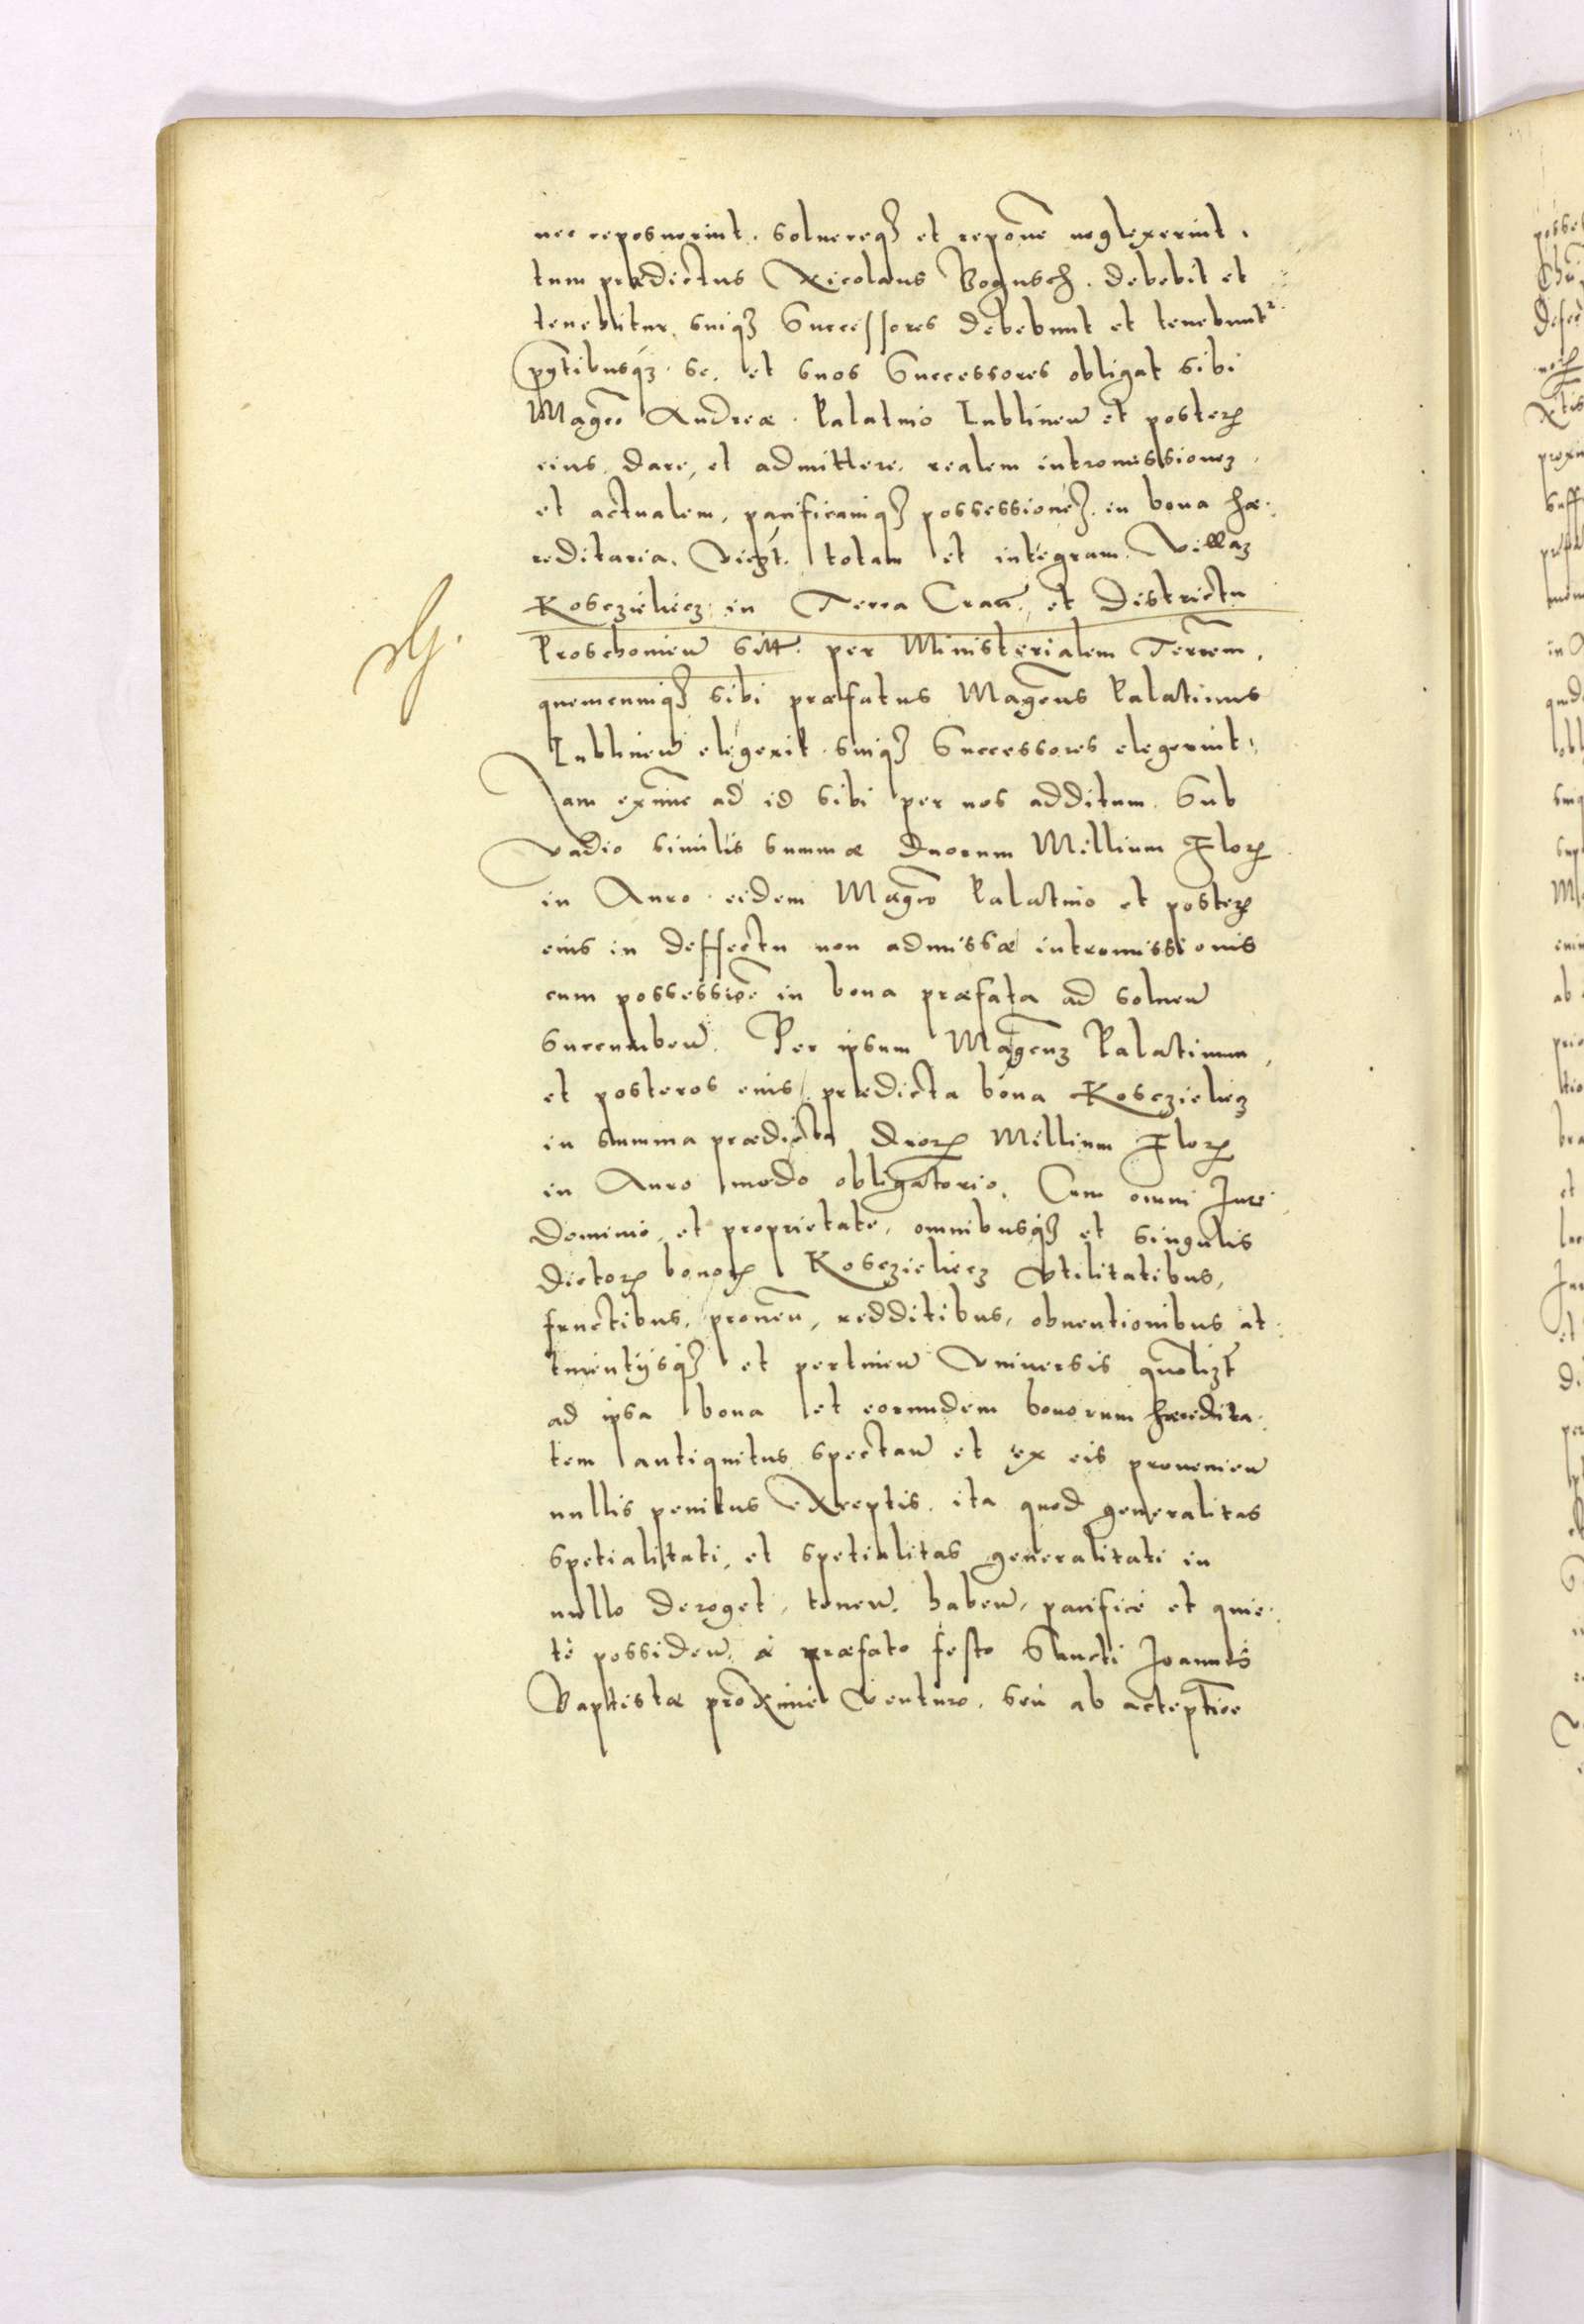 nec reposuerint, soluereqȝ et reponē neglexerint,
tum prædictus Nicolaus Bogusch, debebit et
tenebitur, suiqȝ Successores debebunt et tenebuntr
pn̄tibusqȝ se, et suos Successores obligat sibi
Magco Andreæ Palatino Lublinen̄ et posteꝝ
eius, dare, et admittere, realem intromissioneȝ,
et actualem, pacificamqȝ possessioneȝ, in bona hæ-
reditaria, viczt, totam et integram, Villaȝ
Kosczieliecz in Terra Crac̄, et Districtu
Proschouien̄ sitt. per Ministerialem Terrēm,
quemcumqȝ sibi præfatus Magcus Palatinus
Lublinen̄ elegerit, suiqȝ Successores elegerint,
Iam exnunc ad id sibi per nos additum, Sub
vadio similis summæ Duorum Millium Floꝝ
in Auro eidem Magco Palatino et posteꝝ
eius in deffectu non admissæ intromissionis
cum possessiōe in bona præfata ad soluen̄
succumben̄. Per ipsum Magcuȝ Palatinum,
et posteros eius, prædicta bona Kosczieliecȝ
in summa prædicta Duoꝝ Millium Floꝝ
in Auro modo obligatorio, Cum omni Iure
Dominio, et proprietate, omnibusqȝ et singulis
dictoꝝ bonoꝝ Kosczieliecȝ vtilitatibus,
fructibus, prouen̄, redditibus, obuentionibus at-
tinentijsqȝ et pertinen̄ vniuersis quolizt
ad ipsa bona et eorundem bonorum hæredita-
tem antiquitus spectan̄ et ex eis prouenien̄
nullis penitus exceptis, ita quod generalitas
spetialitati, et spetialitas generalitati in
nullo deroget, tenen̄, haben̄, pacificè et quie-
tè possiden̄, à præfato festo Sancti Ioannis
Baptistæ proximè venturo, seu ab acceptiōe